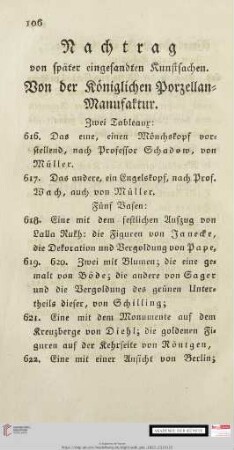 106
Nachtrag
von später eingesandten Kunstsachen.
Von der Königlichen Porzellan-
Manufaktur.
Zwei Tableaux:
616. Das eine, einen Mönchskopf vor-
stellend, nach Professor Schadow, von
Müller.
617. Das andere, ein Engelskopf, nach Prof.
Wach, auch von Müller.
Fünf Vasen:
618. Eine mit dem festlichen Aufzug von
Lalla Rukh: die Figuren von Janecke,
die Dekoration und Vergoldung von Pape,
619. 620. Zwei mit Blumen; die eine ge-
malt von Böde; die andere von Sager
und die Vergoldung des geünen Unter-
theils dieser, von Schilling;
621. Eine mit dem Monumente auf dem
Kreuzberge von Diehl; die goldenen Fi-
guren auf der Kehrseite von Röntgen,
622. Eine mit einer Ansicht von Berlin;
AKADEMIE DER KÜNSTE